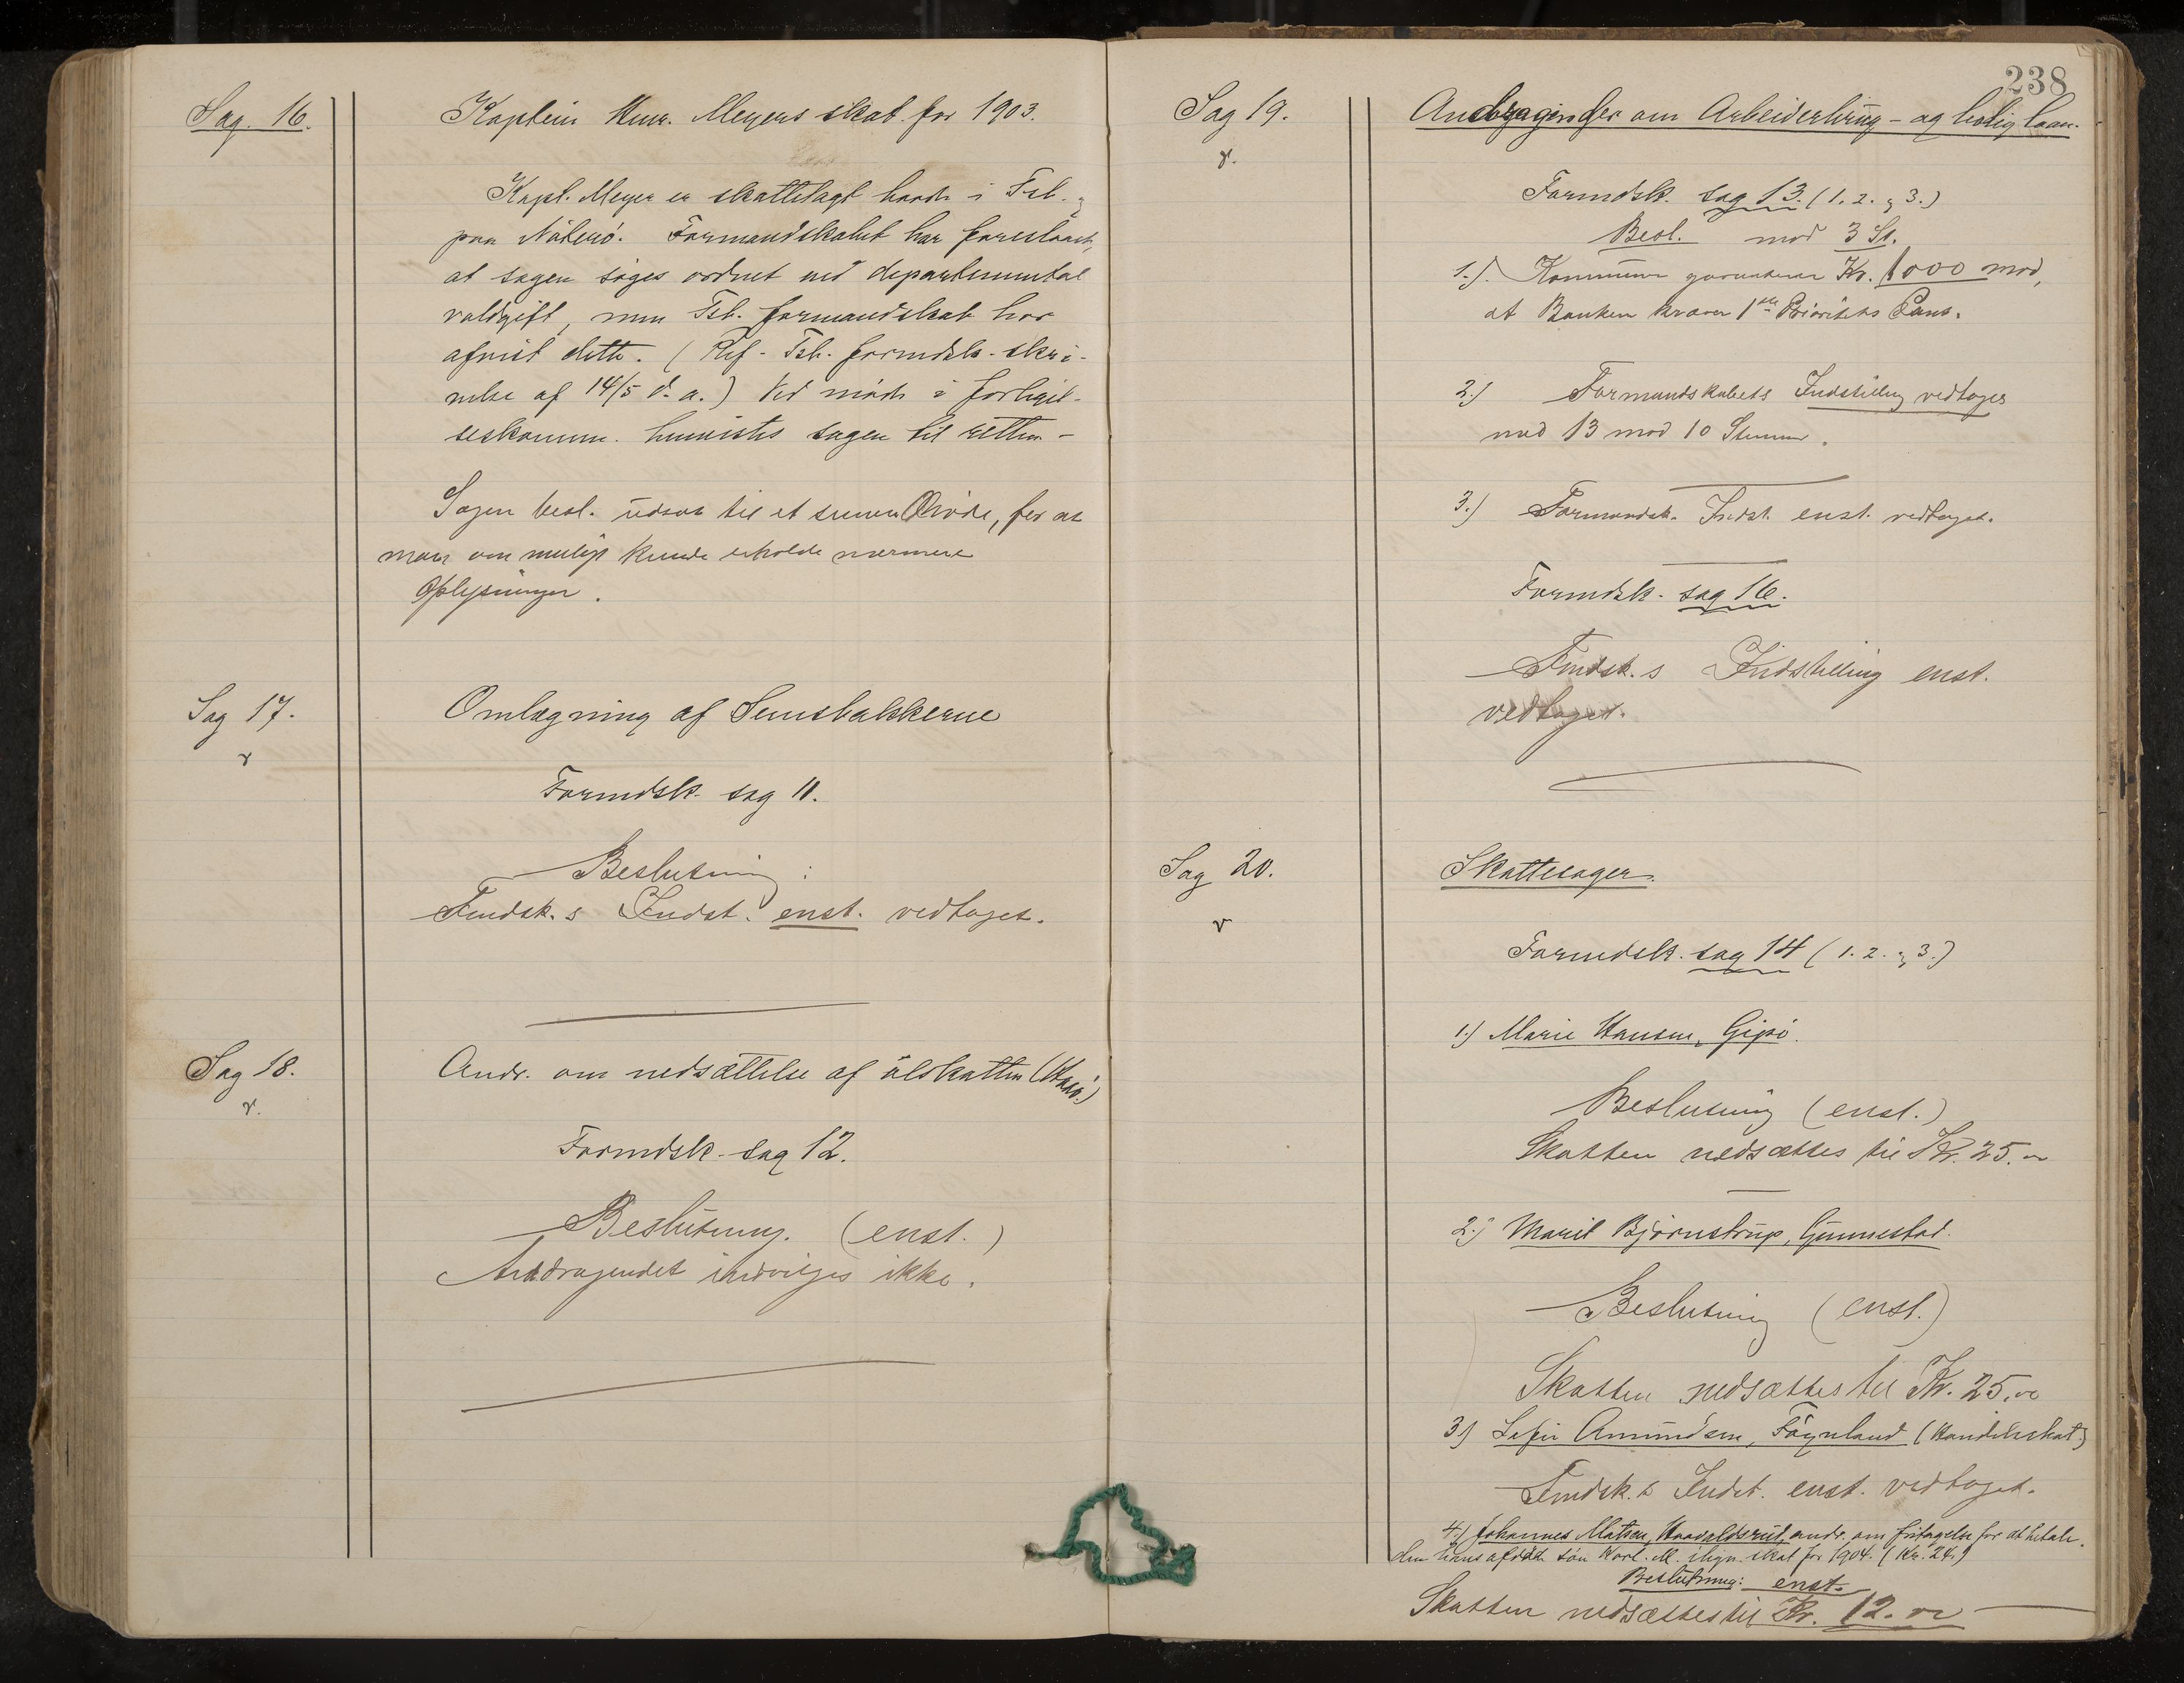 Sag. 16.
Kaptein Henr. Meyers skat for 1903.
Kapt. Meyer er skattelagt baade i Tsb. og
paa Nöterö. Formandskabet har foreslaaet,
at sagen söges ordnet ved departemental
voldgift, men Tsb. formandskab har
afvist dette. (Ref. Tsb. formdsk. skri-
velse af 14/5 d. a.) Ved möde i forligel-
seskomm. henvistes sagen til retten -
Sagen besl. udsat til et senere Möde, for at
man om muligt kunde erholde nærmere
Oplysninger.
Sag 17.
v
Omlægning af Semsbakkerne
Formdsk. sag 11.
Beslutning:
Fmdsk.s Indst. enst. vedtaget.
Sag 18.
v.
Andr. om nedsættelse af ölskatten
Formdsk. sag 12.
Beslutning. (enst.)
Andragendet indvilges ikke.
238
Sag 19.
v.
Andragender om Arbeiderbrug- og bolig laan.
Formdsk. sag 13. (1. 2. og 3.)
Besl. mod 3 St.
1.) Kommunen garanterer Kr. 1000 mod,
at Banken kræver 1ste Prioritets Pant.
2.) Formandskabets Indstilling vedtoges
med 13 mod 10 Stemmer.
3.) Formandsk. Indst. enst. vedtaget.
Formdsk. sag 16.
Fmdsk.s Indstilling enst.
vedtaget.
Sag 20.
v
Skattesager.
Formdsk. sag 14 (1. 2. og 3.)
1.) Marie Hansen, Gipö.
Beslutning (enst.)
Skatten nedsættes til Kr. 25.00
2.) Marit Björnstrup, Gunnestad.
Beslutning (enst.)
Skatten nedsættes til Kr. 25.00
3) Amundsen, Föynland (Handelsskat)
Fmdsk.s Indst. enst. vedtaget.
4.) Johannes Matsen, andr. om fritagelse for at betale
den hans afdöde sön Karl. M. ilign. skat for 1904. (Kr. 24.)
Beslutning: enst.
Skatten nedsættes til Kr. 12.00